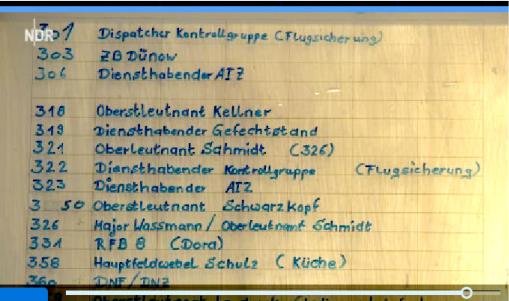 NDR
301 Dispatcher Kontrollgruppe (Flugsicherung)
303 ZB Dünow
306 Diensthabender ATZ
318 Oberstleutnant Kellner
319 Diensthabender Gefechtstand
321 Oberleutnant Schmidt (326)
322 Diensthabender Kontrollgruppe (Flugsicherung)
323 Diensthabender ATZ
3 50 Oberstleutnant Schwarzkopf
326 Major Wassmann / Oberleutnant Schmidt
331 RFB 8 (Dora)
358 Hauptfeldwebel Schulz (Küche)
360 DNF / DNZ
Oberstleutnant